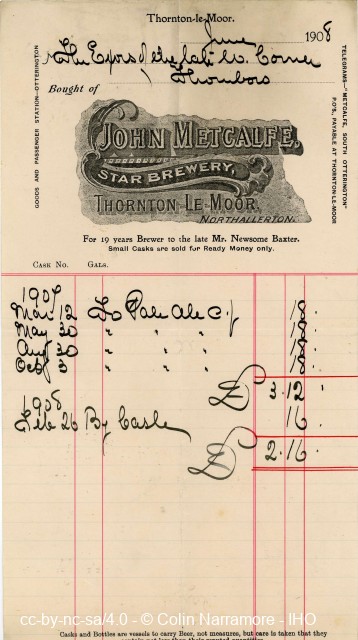 Thornton-le-Moor.
June 1908
The Exors of the late W. Corner
Thornboro
Bought of
JOHN METCALFE,
STAR BREWERY,
THORNTON-LE-MOOR,
NORTHALLERTON.
GOODS AND PASSENGER STATION—OTTERINGTON
TELEGRAMS—"METCALFE, SOUTH OTTERINGTON"
P.O'S, PAYABLE AT THORNTON-LE-MOOR
For 19 years Brewer to the late Mr. Newsome Baxter.
Small Casks are sold for Ready Money only.
CASK NO. GALS.
1907
Mar 12 To Pale Ale 18
May 30 " " " 18
Aug 30 " " " 18
Oct 3 " " " 18
£ 3.12
1908
Feb 26 By Cash 16
£ 2.16
Casks and Bottles are vessels to carry Beer, not measures, but care is taken that they
contain not less than their reputed quantities.
cc-by-nc-sa/4.0 - © Colin Narramore - IHO